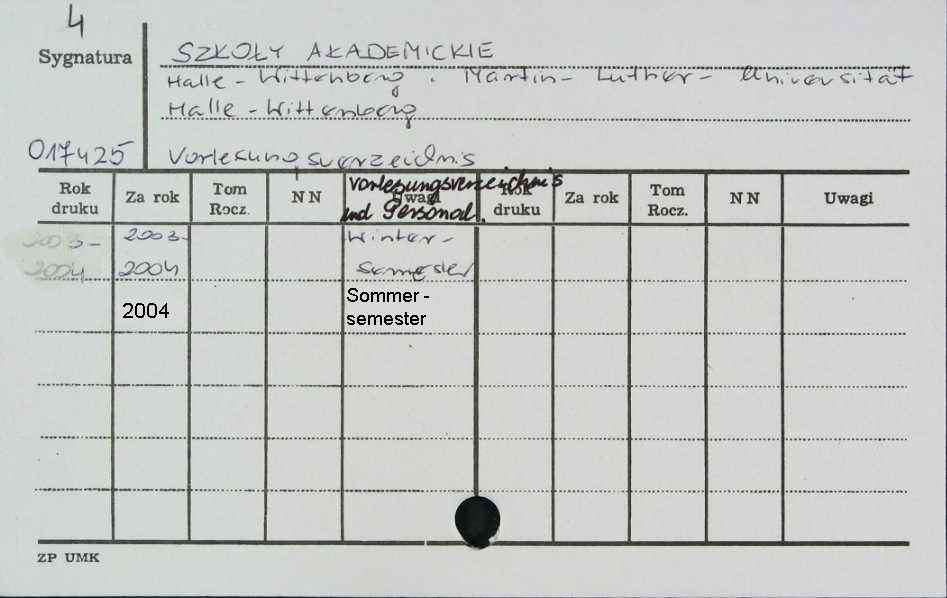 4
Sygnatura
SZKOŁY AKADEMICKIE
Halle - Wittenberg . Martin - Luther - Universität
Halle - Wittenberg
017425
Vorlesungsverzeichnis
Rok druku Za rok Tom Rocz. NN Uwagi Rok druku Za rok Tom Rocz. NN Uwagi
Vorlesungsverzeichnis
und Personal.
2003- 2003- Winter-
2004 2004 semester
2004 Sommer-
semester
ZP UMK